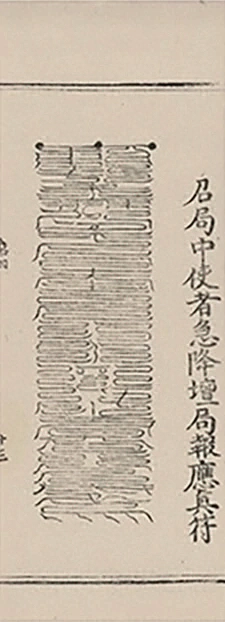 召局中使者急降壇局報應真符